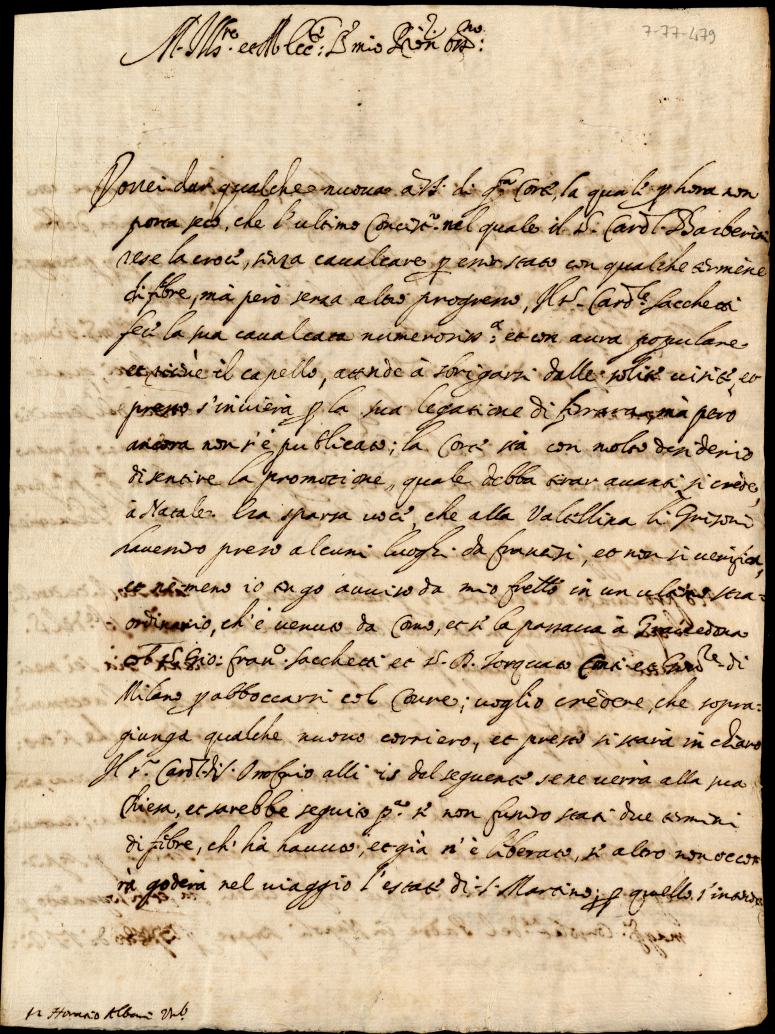 M. Ill.re et M. Ecc.te S.r mio Pron. oss.mo:
7-77-479
Vorrei dar qualche nuova à V.S. di q.sta Corte, la quale p hora non
porta seco, che l'ultimo Concist.o nel quale il S. Card.l Barberini
rese la croce, senza cavalcare p esser stato con qualche termine
di febre, mà però senza altro progresso, Il S.r Card.le Sacchetti
fece la sua cavalcata numerosiss.a, et con aura populare
il capello, attende à sbrigarsi dalle solite visite, et
presto s'invierà p la sua legatione di ferrara, mà però
ancora non s'è publicato; la Corte stà con molto desiderio
di sentire la promotione, quale debba tirar avanti si crede,
à Natale. Era sparsa voce, che alla Valtellina li Grisoni
havendo preso alcuni luoghi da francesi, et non si verifica,
et ne meno io tengo avviso da mio frello in un straordinario
ordinario, ch'è venuto da Como, et se la passava à Gravedona
S. Gio: Fran.o Sacchetti et S. D. Torquato Conti et di
Milano p abboccarsi col ; voglio credere, che sopra-
giunga qualche nuovo corriero, et presto si starà in chiaro
Il S.r Card.l di S. Onofrio alli 15 del seguente sene verrà alla sua
Chiesa, et sarebbe seguito p.a se non fussero stati due termini
di febre, ch' hà havuto, et già n'è liberato, se altro non occor
rà goderà nel viaggio l'estate di S. Martino; p quello s'intende
Horatio Albani Urb.